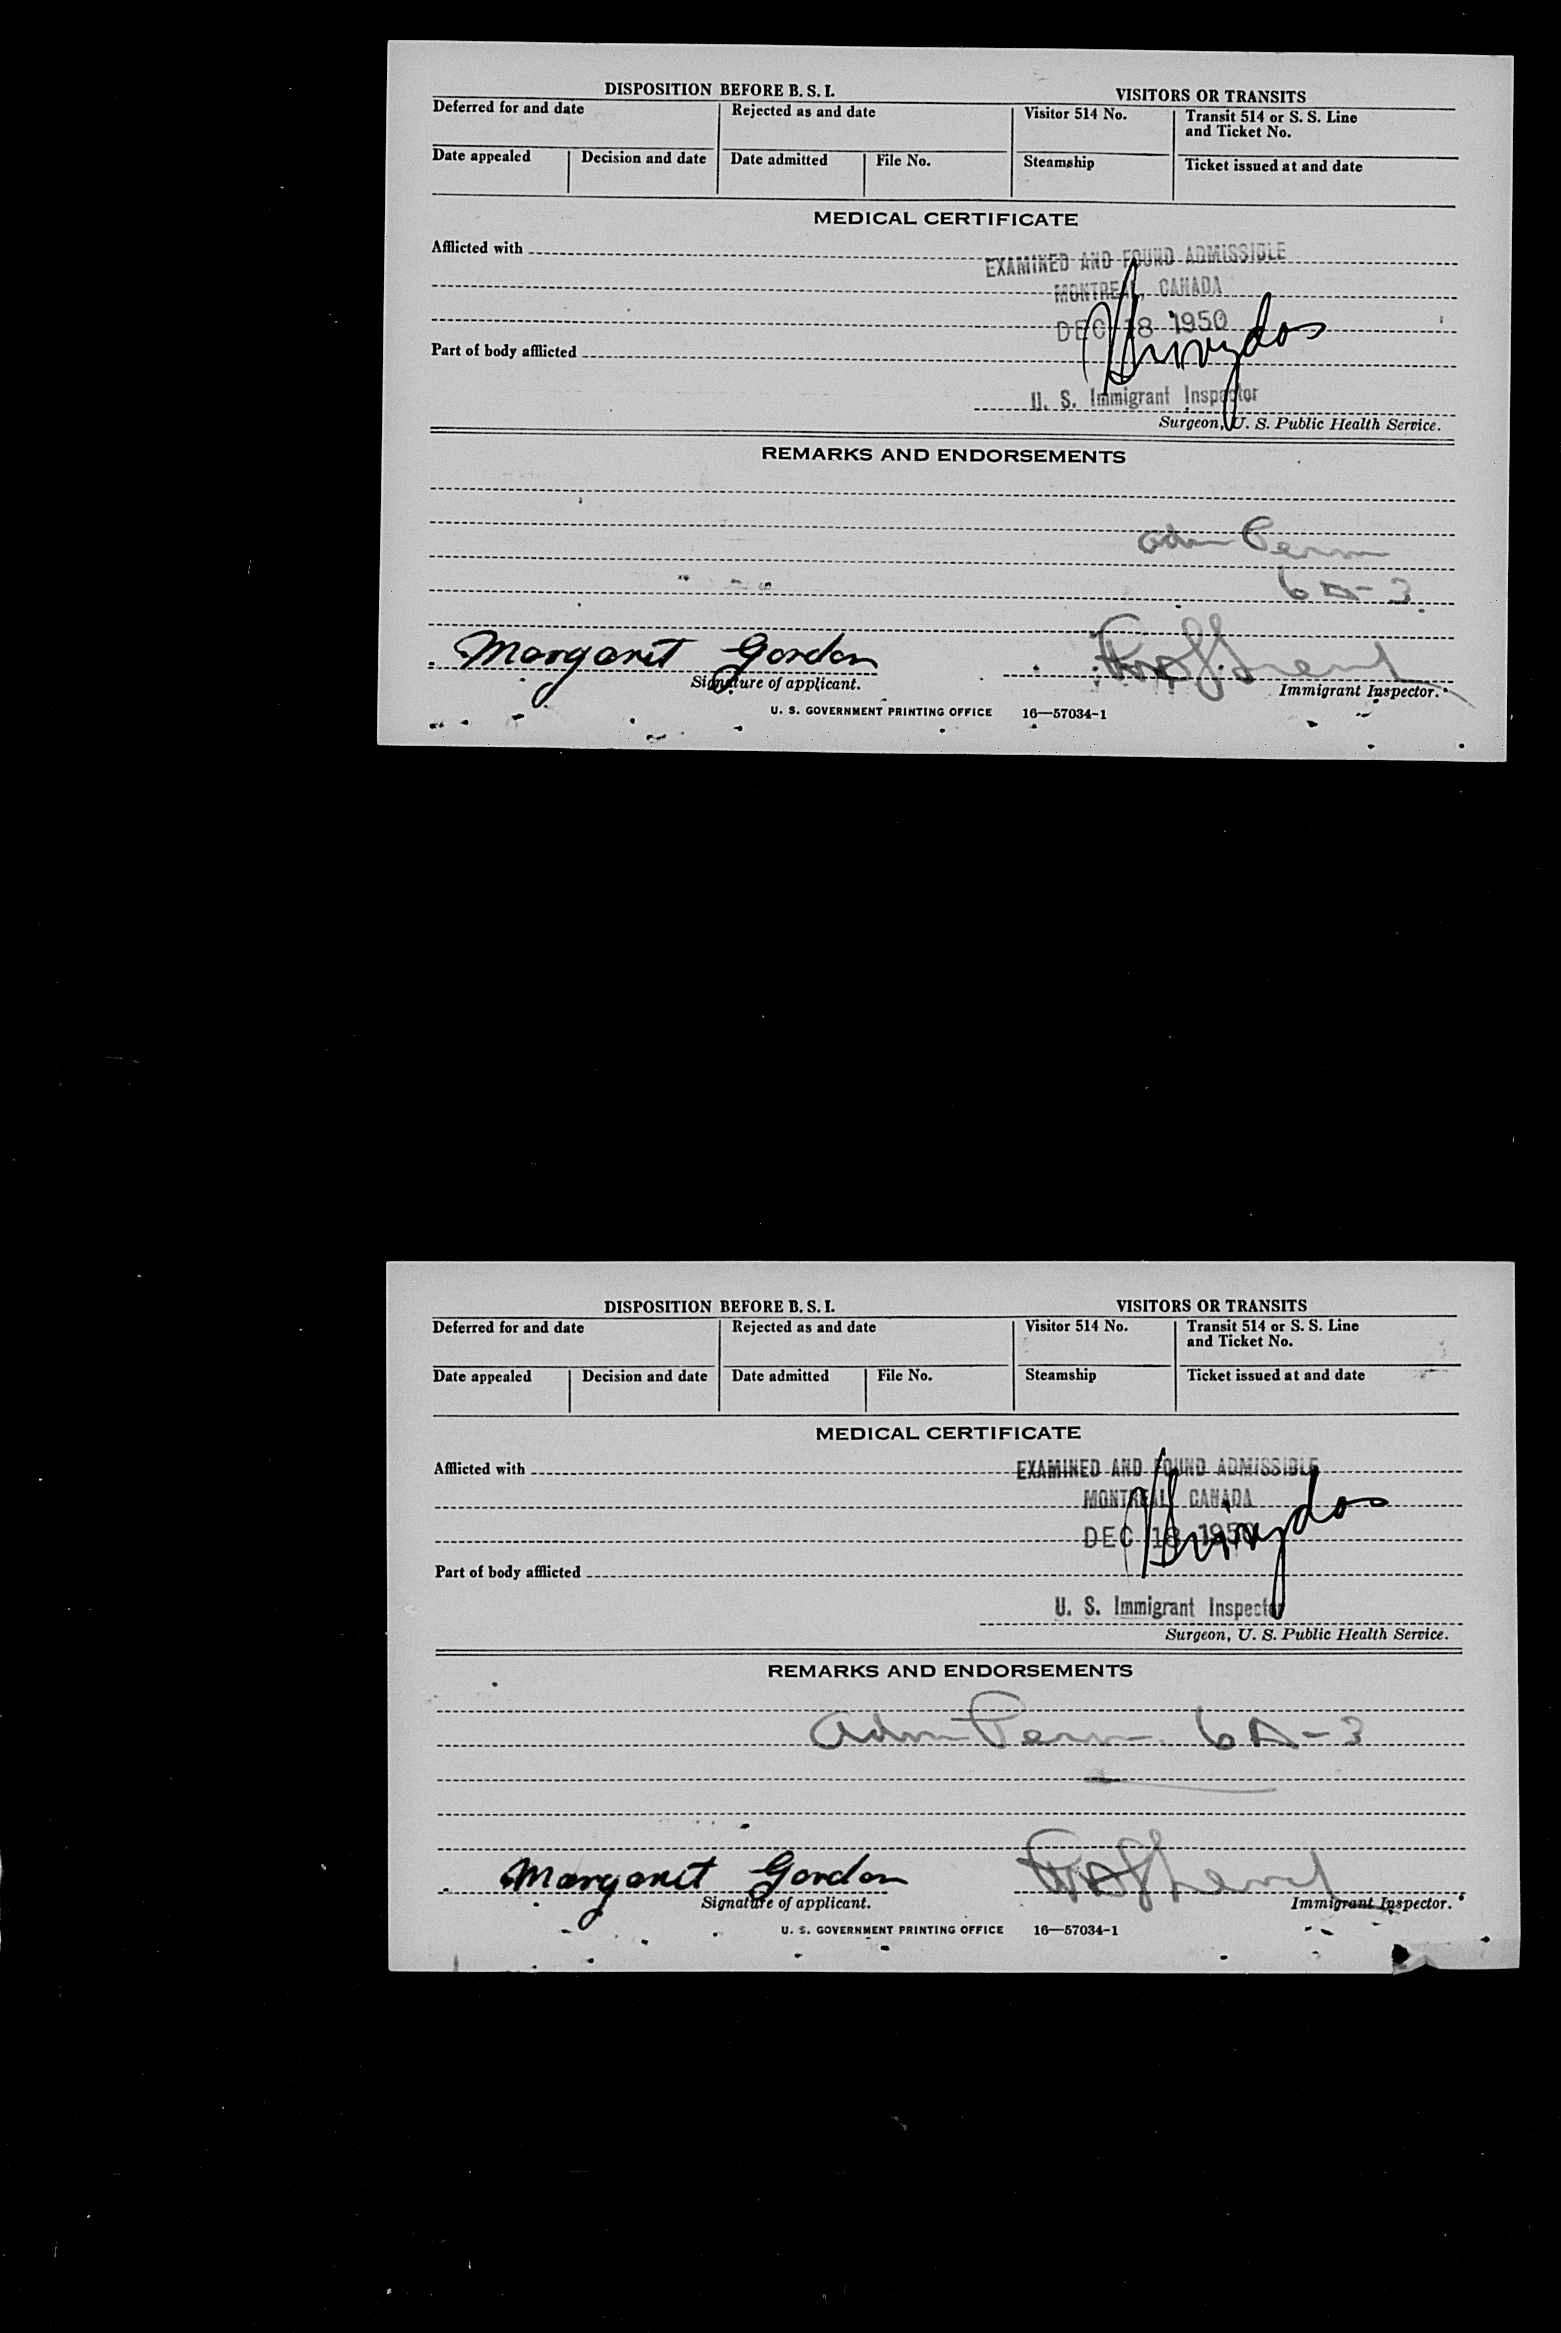 DISPOSITION BEFORE B. S. I.
VISITORS OR TRANSITS
Deferred for and date
Rejected as and date
Visitor 514 No.
Transit 514 or S. S. Line
and Ticket No.
Date appealed
Decision and date
Date admitted
File No.
Steamship
Ticket issued at and date
MEDICAL CERTIFICATE
Afflicted with
EXAMINED AND FOUND ADMISSIBLE
MONTREAL, CANADA
DEC 18 1950
Part of body afflicted
U. S. Immigrant Inspector
Surgeon, U. S. Public Health Service.
REMARKS AND ENDORSEMENTS
Adm Perm
6A-3
Margaret Gordon
Signature of applicant.
Immigrant Inspector.
U. S. GOVERNMENT PRINTING OFFICE 16—57034-1
DISPOSITION BEFORE B. S. I.
VISITORS OR TRANSITS
Deferred for and date
Rejected as and date
Visitor 514 No.
Transit 514 or S. S. Line
and Ticket No.
Date appealed
Decision and date
Date admitted
File No.
Steamship
Ticket issued at and date
MEDICAL CERTIFICATE
Afflicted with
EXAMINED AND FOUND ADMISSIBLE
MONTREAL, CANADA
DEC 18 1950
Part of body afflicted
U. S. Immigrant Inspector
Surgeon, U. S. Public Health Service.
REMARKS AND ENDORSEMENTS
Adm Perm. 6A-3
Margaret Gordon
Signature of applicant.
Immigrant Inspector.
U. S. GOVERNMENT PRINTING OFFICE 16—57034-1